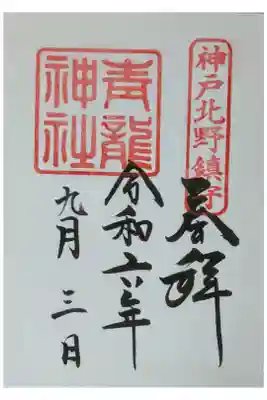 神戸北野鎮守
奉拝
青龍
神社
令和六年
九月三日